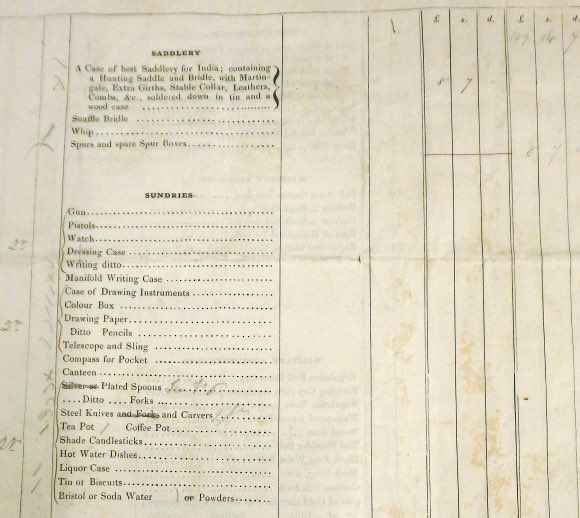 £ s. d. £ s. d.
SADDLERY
A Case of best Saddlery for India; containing
a Hunting Saddle and Bridle, with Martin-
gale, Extra Girths, Stable Collar, Leathers,
Combs, &c., soldered down in tin and a
wood case ........ 8 7
Snaffle Bridle ........
Whip........
Spurs and spare Spur Boxes........ 8 7
SUNDRIES
Gun........
Pistols........
Watch........
Dressing Case ........
Writing ditto........
Manifold Writing Case ........
Case of Drawing Instruments ........
Colour Box ........
Drawing Paper........
Ditto Pencils ........
Telescope and Sling ........
Compass for Pocket ........
Canteen ........
Silver or Plated Spoons
.... Ditto .... Forks ........
Steel Knives and Forks and Carvers
Tea Pot 1 Coffee Pot........
Shade Candlesticks........
Hot Water Dishes........
Liquor Case ........
Tin of Biscuits........
Bristol or Soda Water } or Powders........